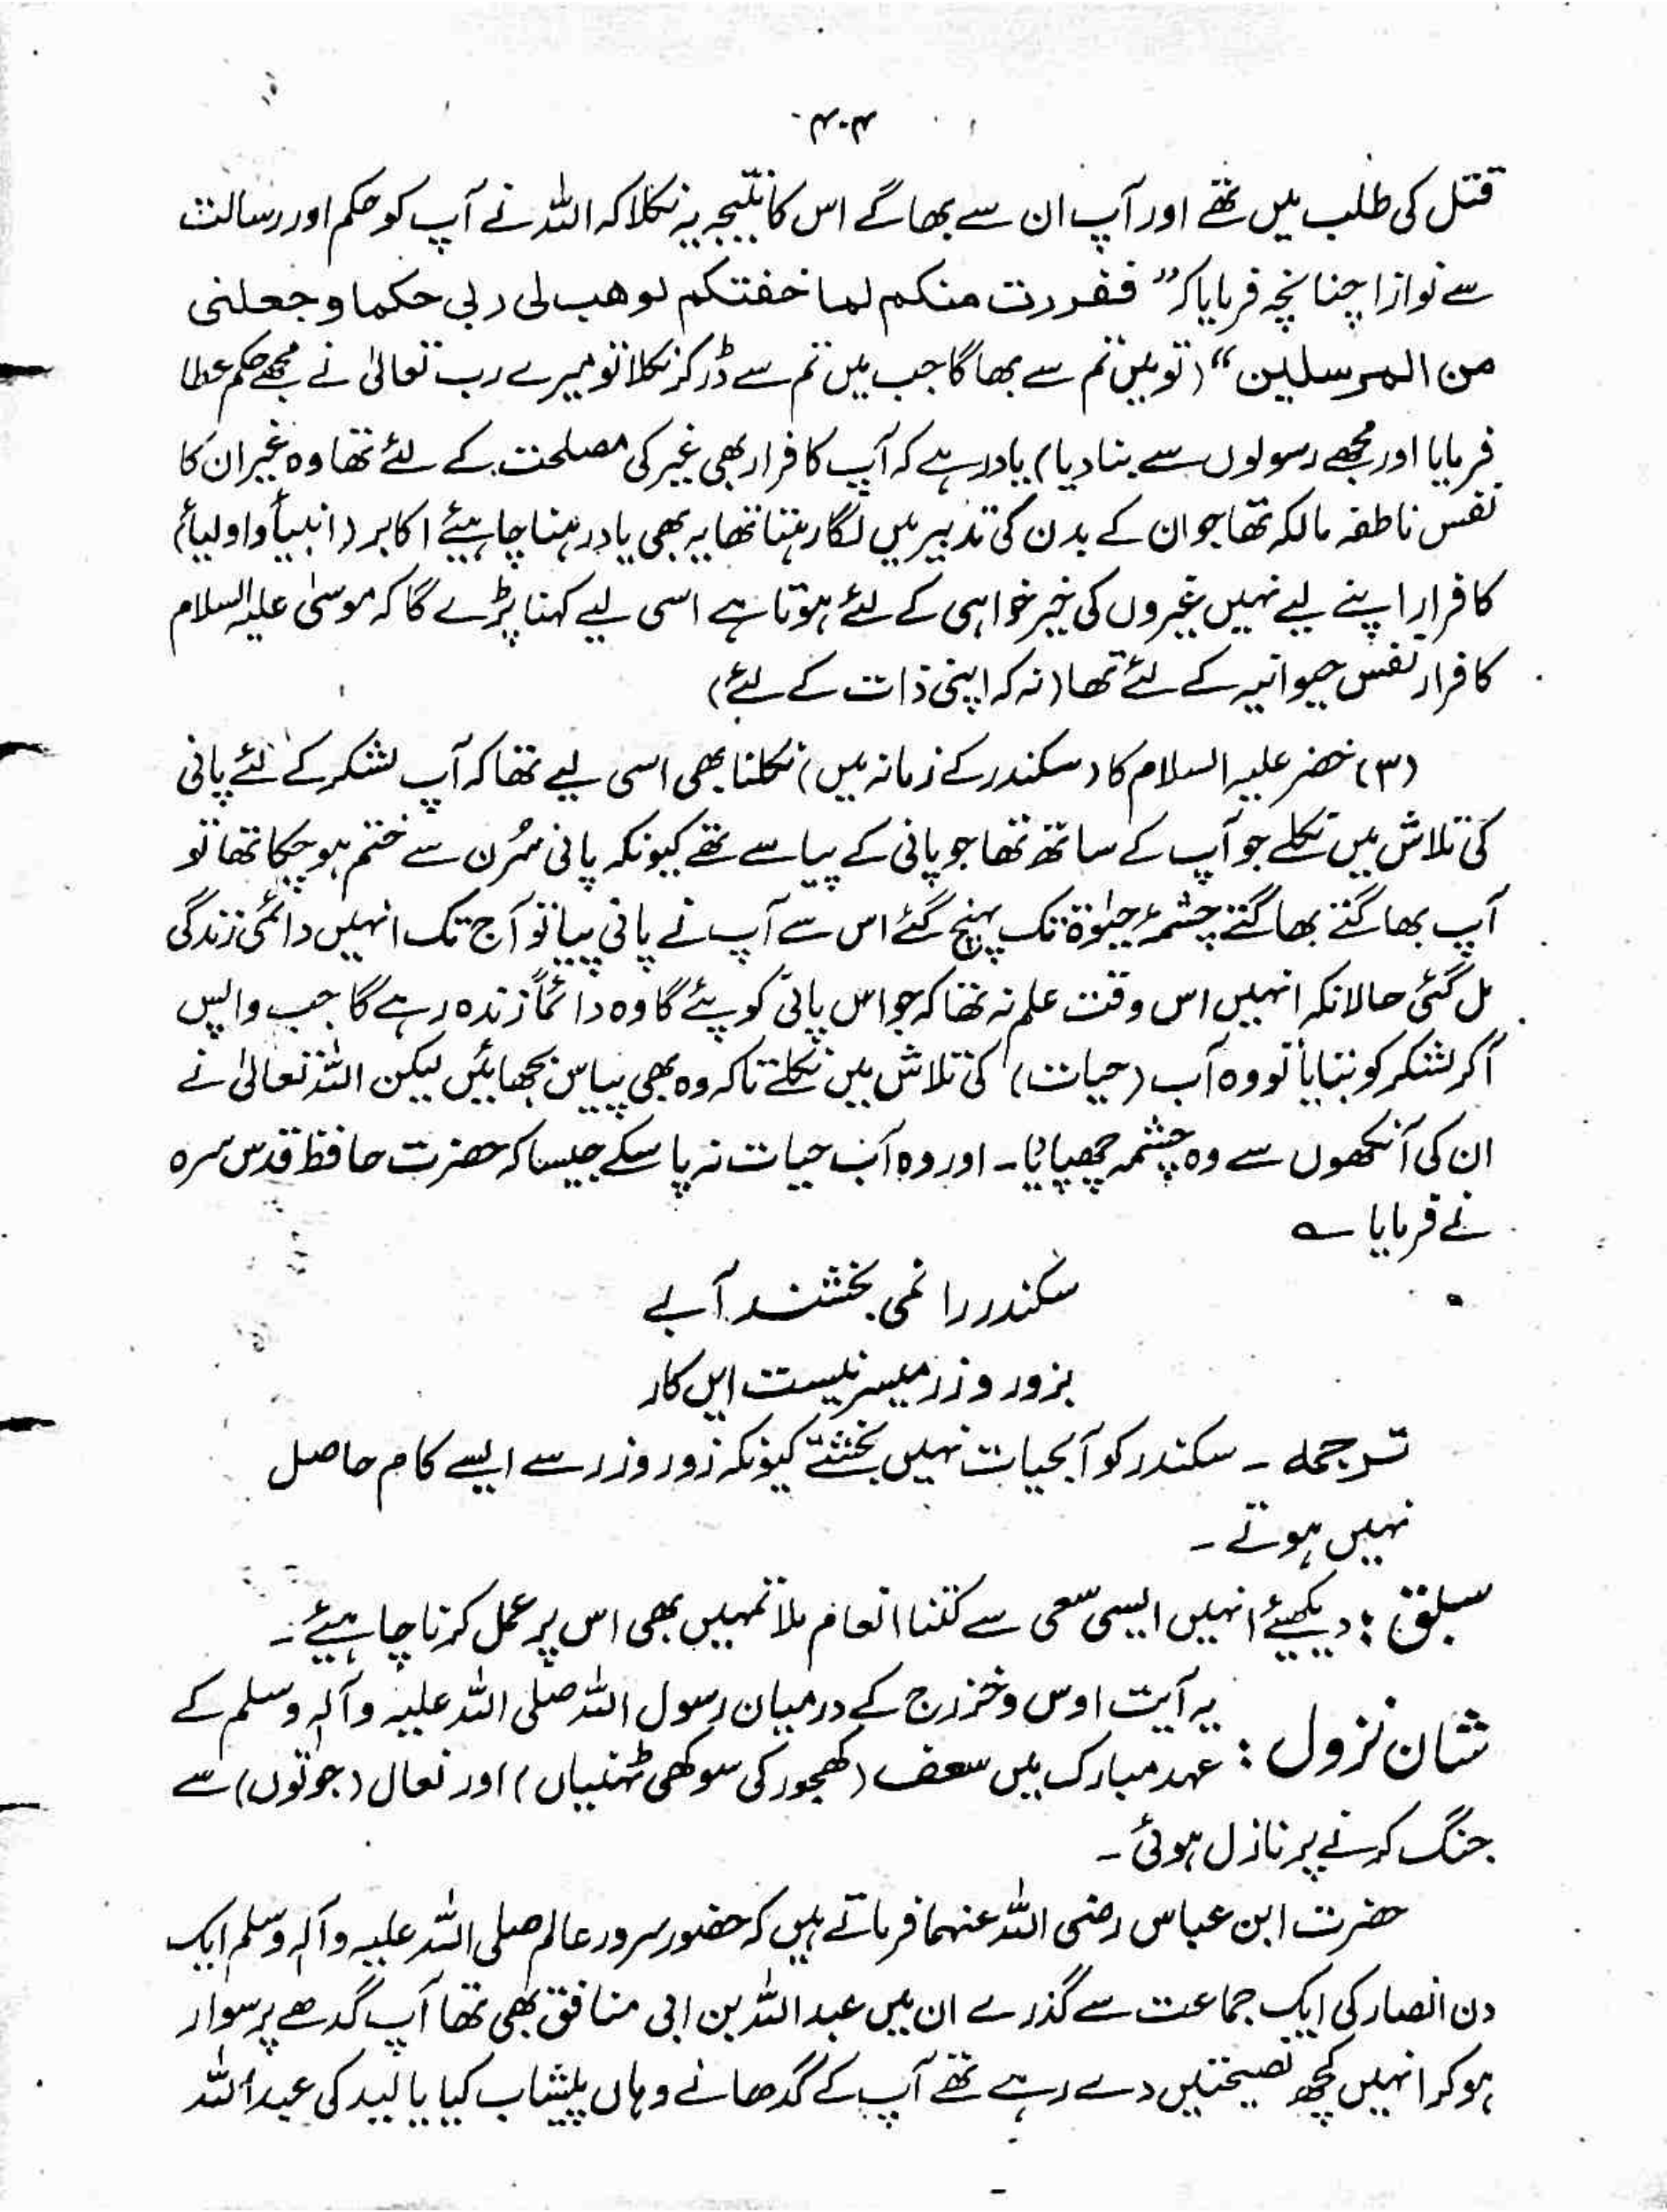 ۴۰۴
قتل کی طلب میں تھے اور آپ ان سے بھاگے اس کا نتیجہ یہ نکلا کہ اللہ نے آپ کو حکم اور رسالت
سے نوازا چنانچہ فرمایا کہ ” ففررت منکم لما خفتکم فوهب لی ربی حکما وجعلنی
من المرسلین “ (تو میں تم سے بھاگا جب میں تم سے ڈر کر نکلا تو میرے رب تعالیٰ نے مجھے حکم عطا
فرمایا اور مجھے رسولوں سے بنا دیا) یاد رہے کہ آپ کا فرار بھی غیر کی مصلحت کے لئے تھا وہ غیر ان کا
نفس ناطقہ مالکہ تھا جو ان کے بدن کی تدبیر میں لگا رہتا تھا یہ بھی یاد رہنا چاہیئے اکابر (انبیأ و اولیأ)
کا فرار اپنے لیے نہیں غیروں کی خیر خواہی کے لئے ہوتا ہے اسی لیے کہنا پڑے گا کہ موسیٰ علیہ السلام
کا فرار نفس حیوانیہ کے لئے تھا (نہ کہ اپنی ذات کے لئے)
(۳) خضر علیہ السلام کا (سکندر کے زمانہ میں) نکلنا بھی اسی لیے تھا کہ آپ لشکر کے لئے پانی
کی تلاش میں نکلے جو آپ کے ساتھ تھا جو پانی کے پیاسے تھے کیونکہ پانی سے ختم ہو چکا تھا تو
آپ بھاگتے بھاگتے چشمۂ حیٰوۃ تک پہنچ گئے اس سے آپ نے پانی پیا تو آج تک انہیں دائمی زندگی
مل گئی حالانکہ انہیں اس وقت علم نہ تھا کہ جو اس پانی کو پئے گا وہ دائماً زندہ رہے گا جب واپس
آ کر لشکر کو بتایا تو وہ آب (حیات) کی تلاش میں نکلے تاکہ وہ بھی پیاس بجھائیں لیکن اللہ تعالیٰ نے
ان کی آنکھوں سے وہ چشمہ چھپایا۔ اور وہ آب حیات نہ پا سکے جیسا کہ حضرت حافظ قدس سرہ
نے فرمایا ؎
سکندر را نمی بخشند آبے
بزور و زر میسر نیست ایں کار
ترجمہ ۔ سکندر کو آبحیات نہیں بخشتے کیونکہ زور و زر سے ایسے کام حاصل
نہیں ہوتے ۔
سبق : دیکھیئے انہیں ایسی سعی سے کتنا انعام ملا تمہیں بھی اس پر عمل کرنا چاہیئے ۔
شان نزول : یہ آیت اوس و خزرج کے درمیان رسول اللہ صلی اللہ علیہ وآلہ وسلم کے
عہد مبارک میں سعف (کھجور کی سوکھی ٹہنیاں) اور نعال (جوتوں) سے
جنگ کرنے پر نازل ہوئی ۔
حضرت ابن عباس رضی اللہ عنہما فرماتے ہیں کہ حضور سرور عالم صلی اللہ علیہ وآلہ وسلم ایک
دن انصار کی ایک جماعت سے گذرے ان میں عبداللہ بن ابی منافق بھی تھا آپ گدھے پر سوار
ہو کر انہیں کچھ نصیحتیں دے رہے تھے آپ کے گدھا نے وہاں پیشاب کیا یا لید کی عبداللہ